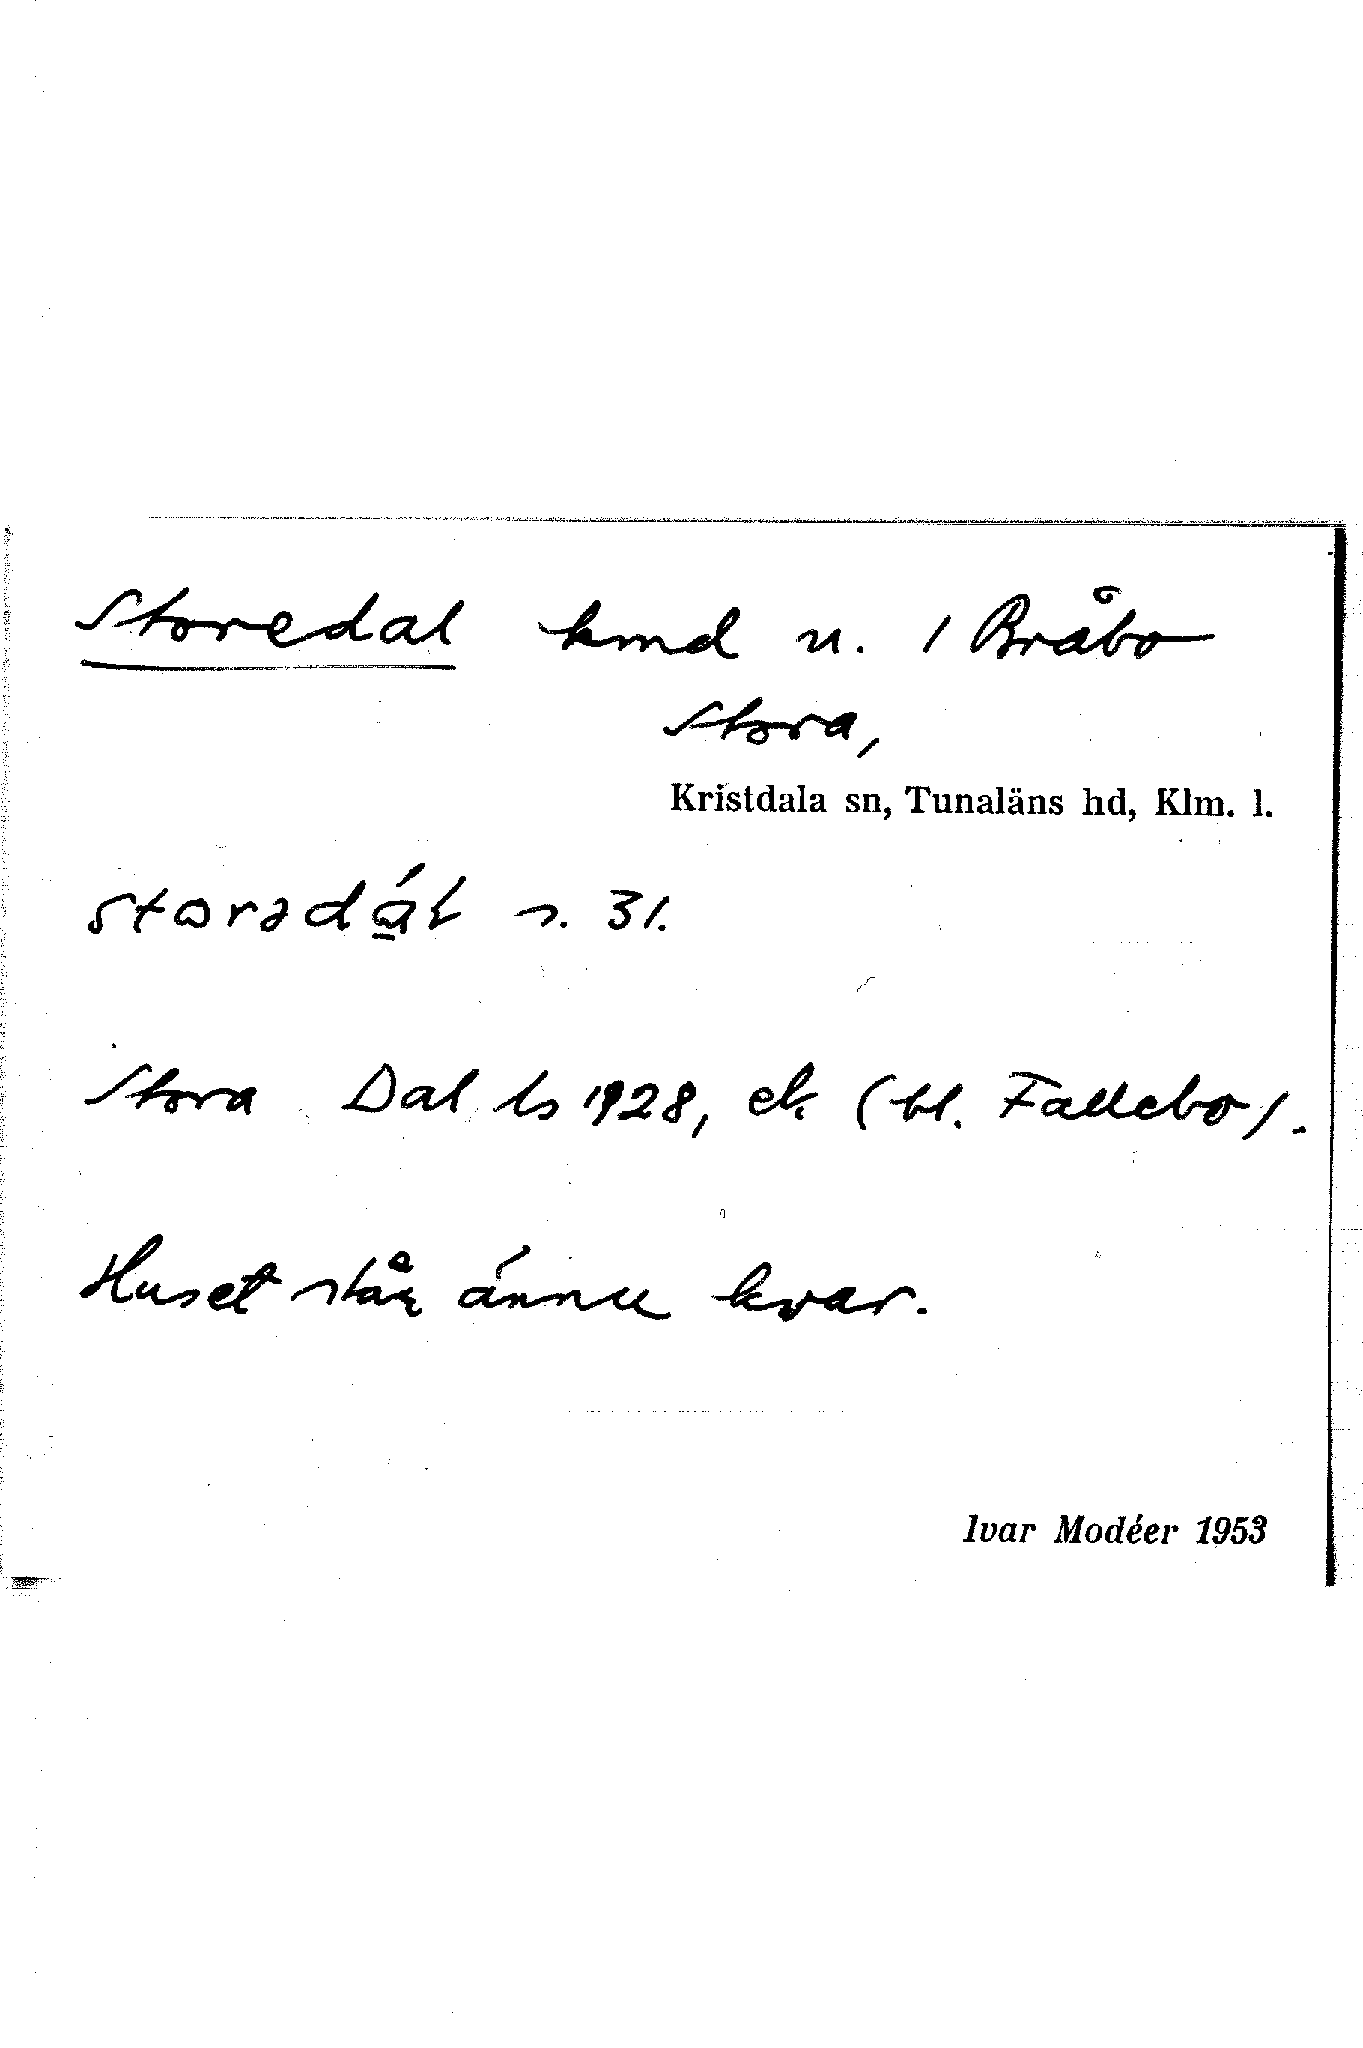 Storedal kmd u. 1 Bråbo
Stora,
Kristdala sn, Tunaläns hd, Klm. l.
storədál s. 31.
Stora Dal ls 1928, ek (bl. Fallebo).
Huset står ännu kvar.
Ivar Modéer 1953